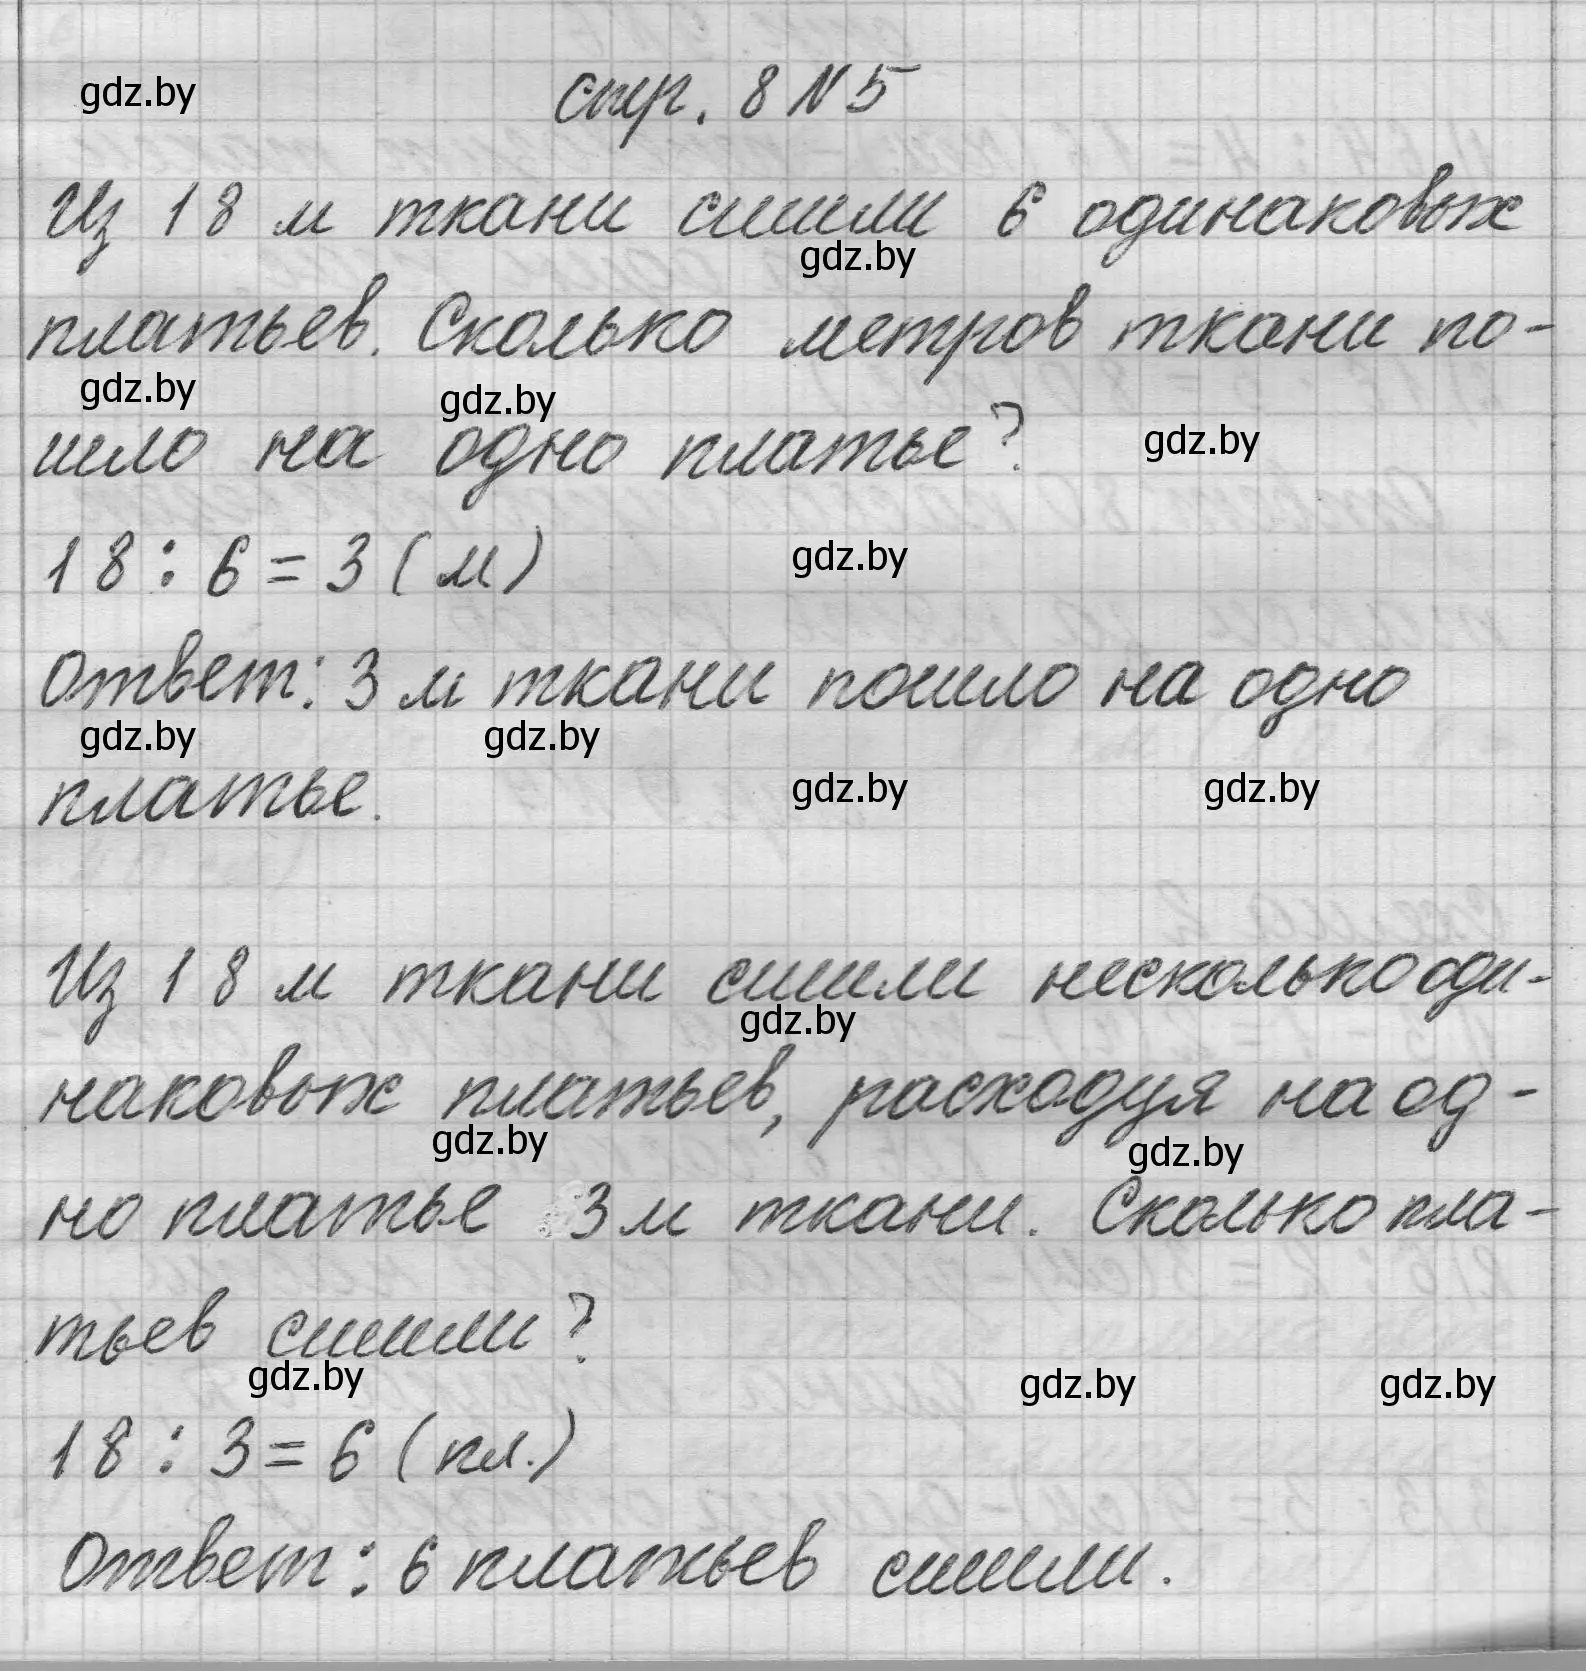 gdz.by
стр. 8 N 5
Из 18 м ткани сшили 6 одинаковых
gdz.by
платьев. Сколько метров ткани по-
gdz.by gdz.by
шло на одно платье? gdz.by
18 : 6 = 3 (м) gdz.by
Ответ: 3 м ткани пошло на одно
gdz.by gdz.by
платье. gdz.by gdz.by
Из 18 м ткани сшили несколько оди-
gdz.by
наковых платьев, расходуя на од-
gdz.by gdz.by
но платье 3 м ткани. Сколько пла-
тьев сшили?
gdz.by gdz.by gdz.by
18 : 3 = 6 (пл.)
Ответ: 6 платьев сшили.